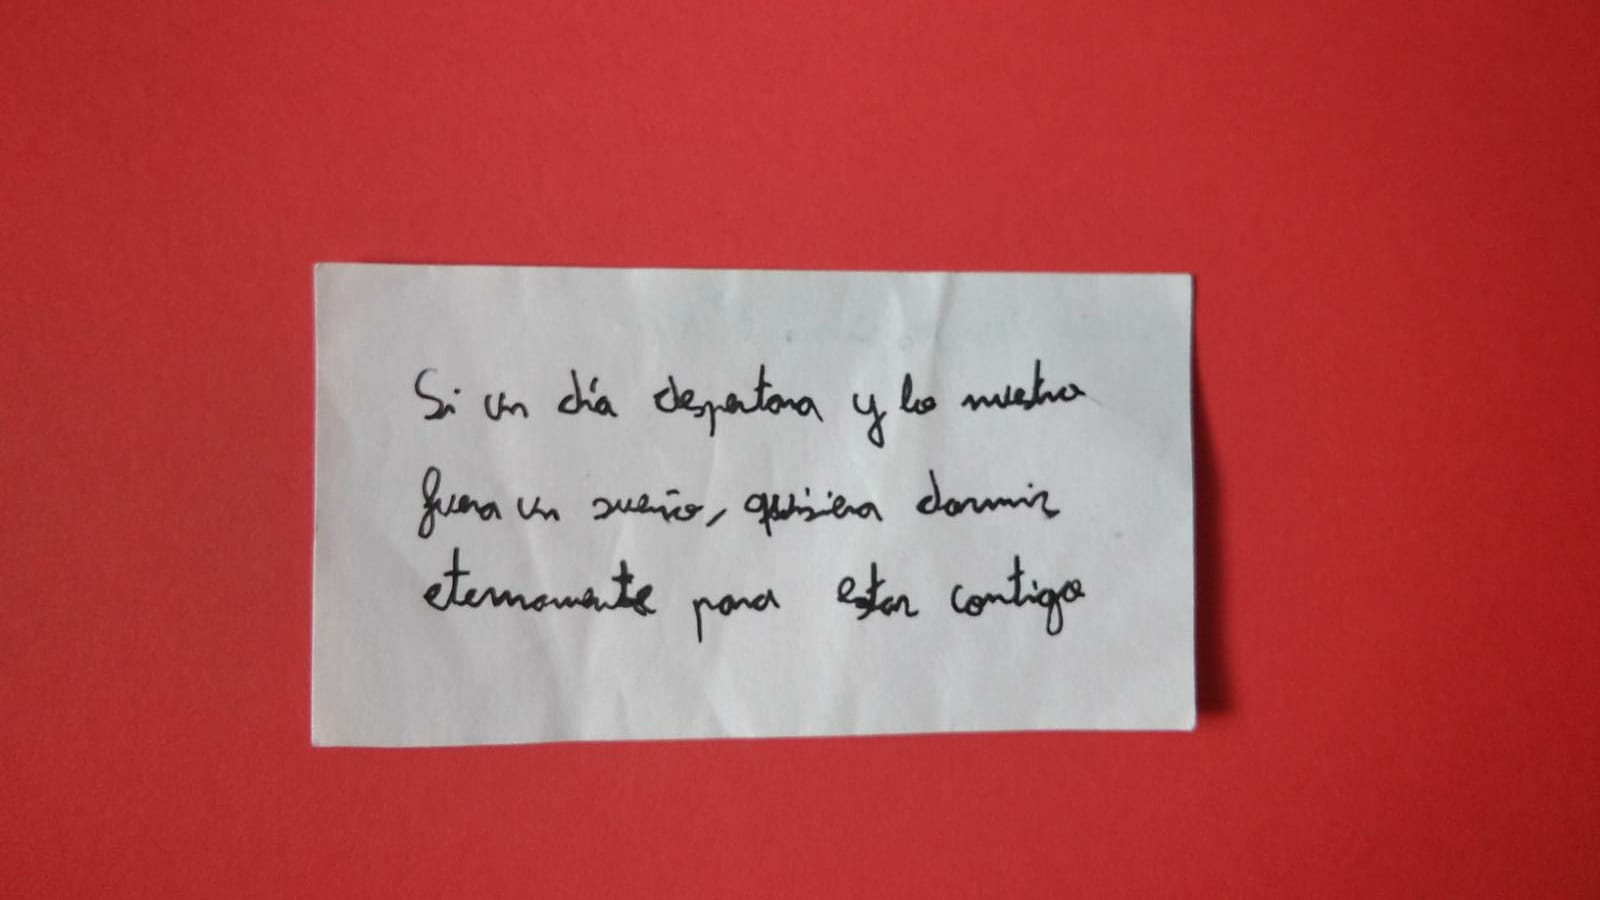 Si un día despertara y lo nuestro
fuera un sueño, quisiera dormir
eternamente para estar contigo